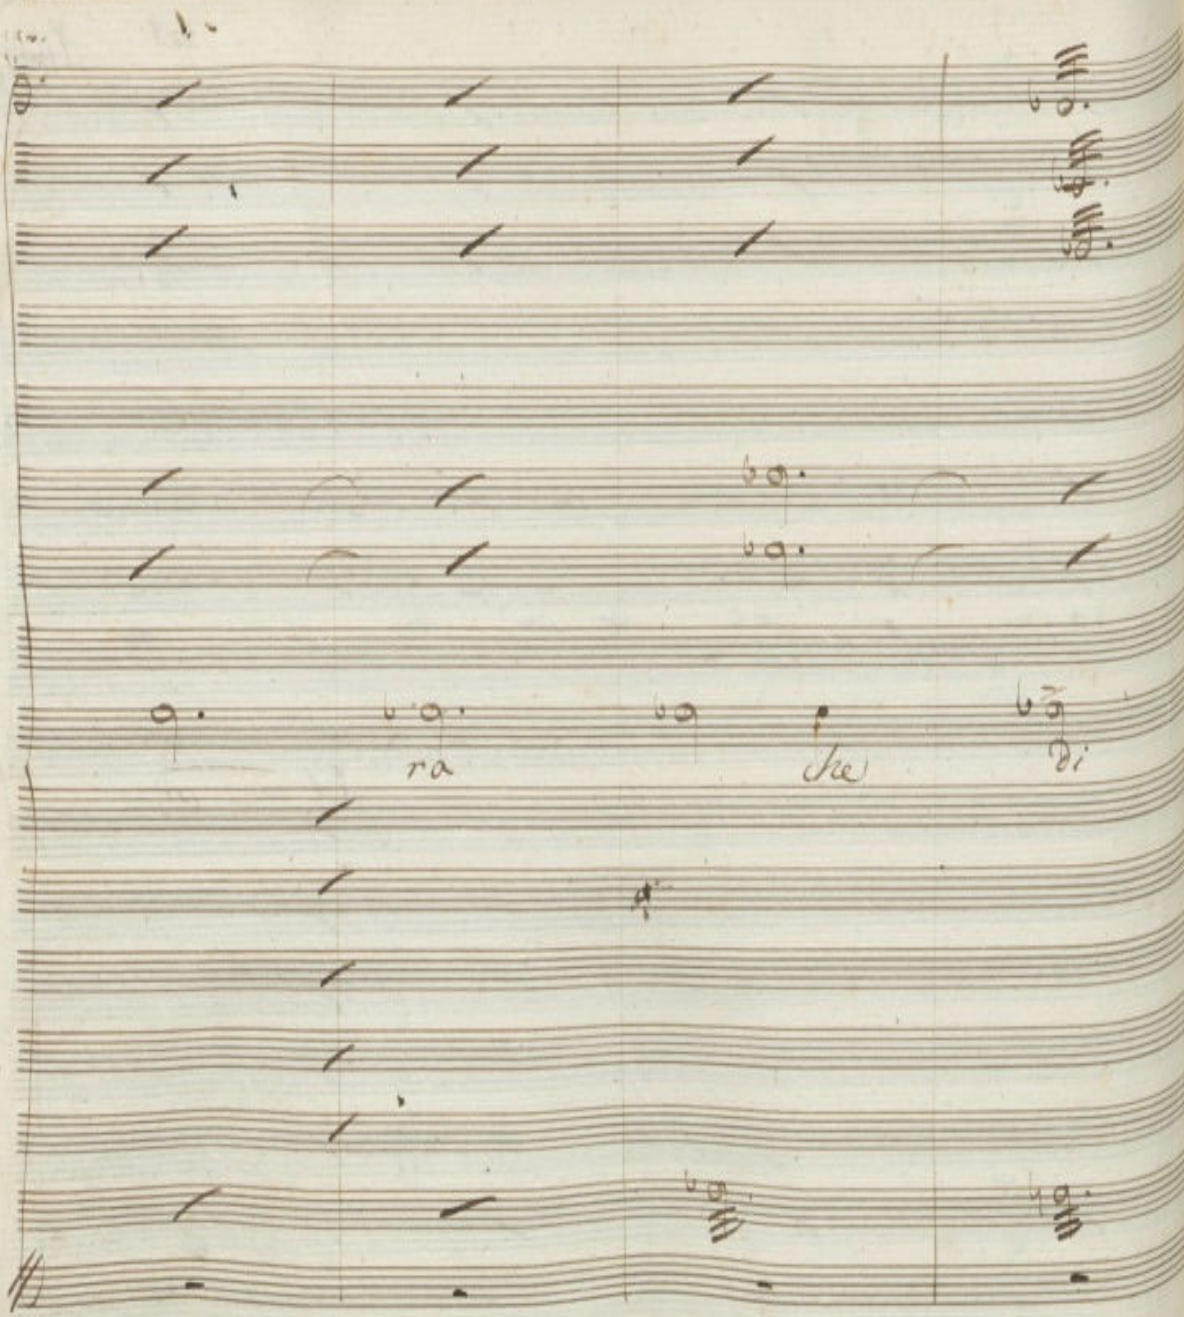 ra che di